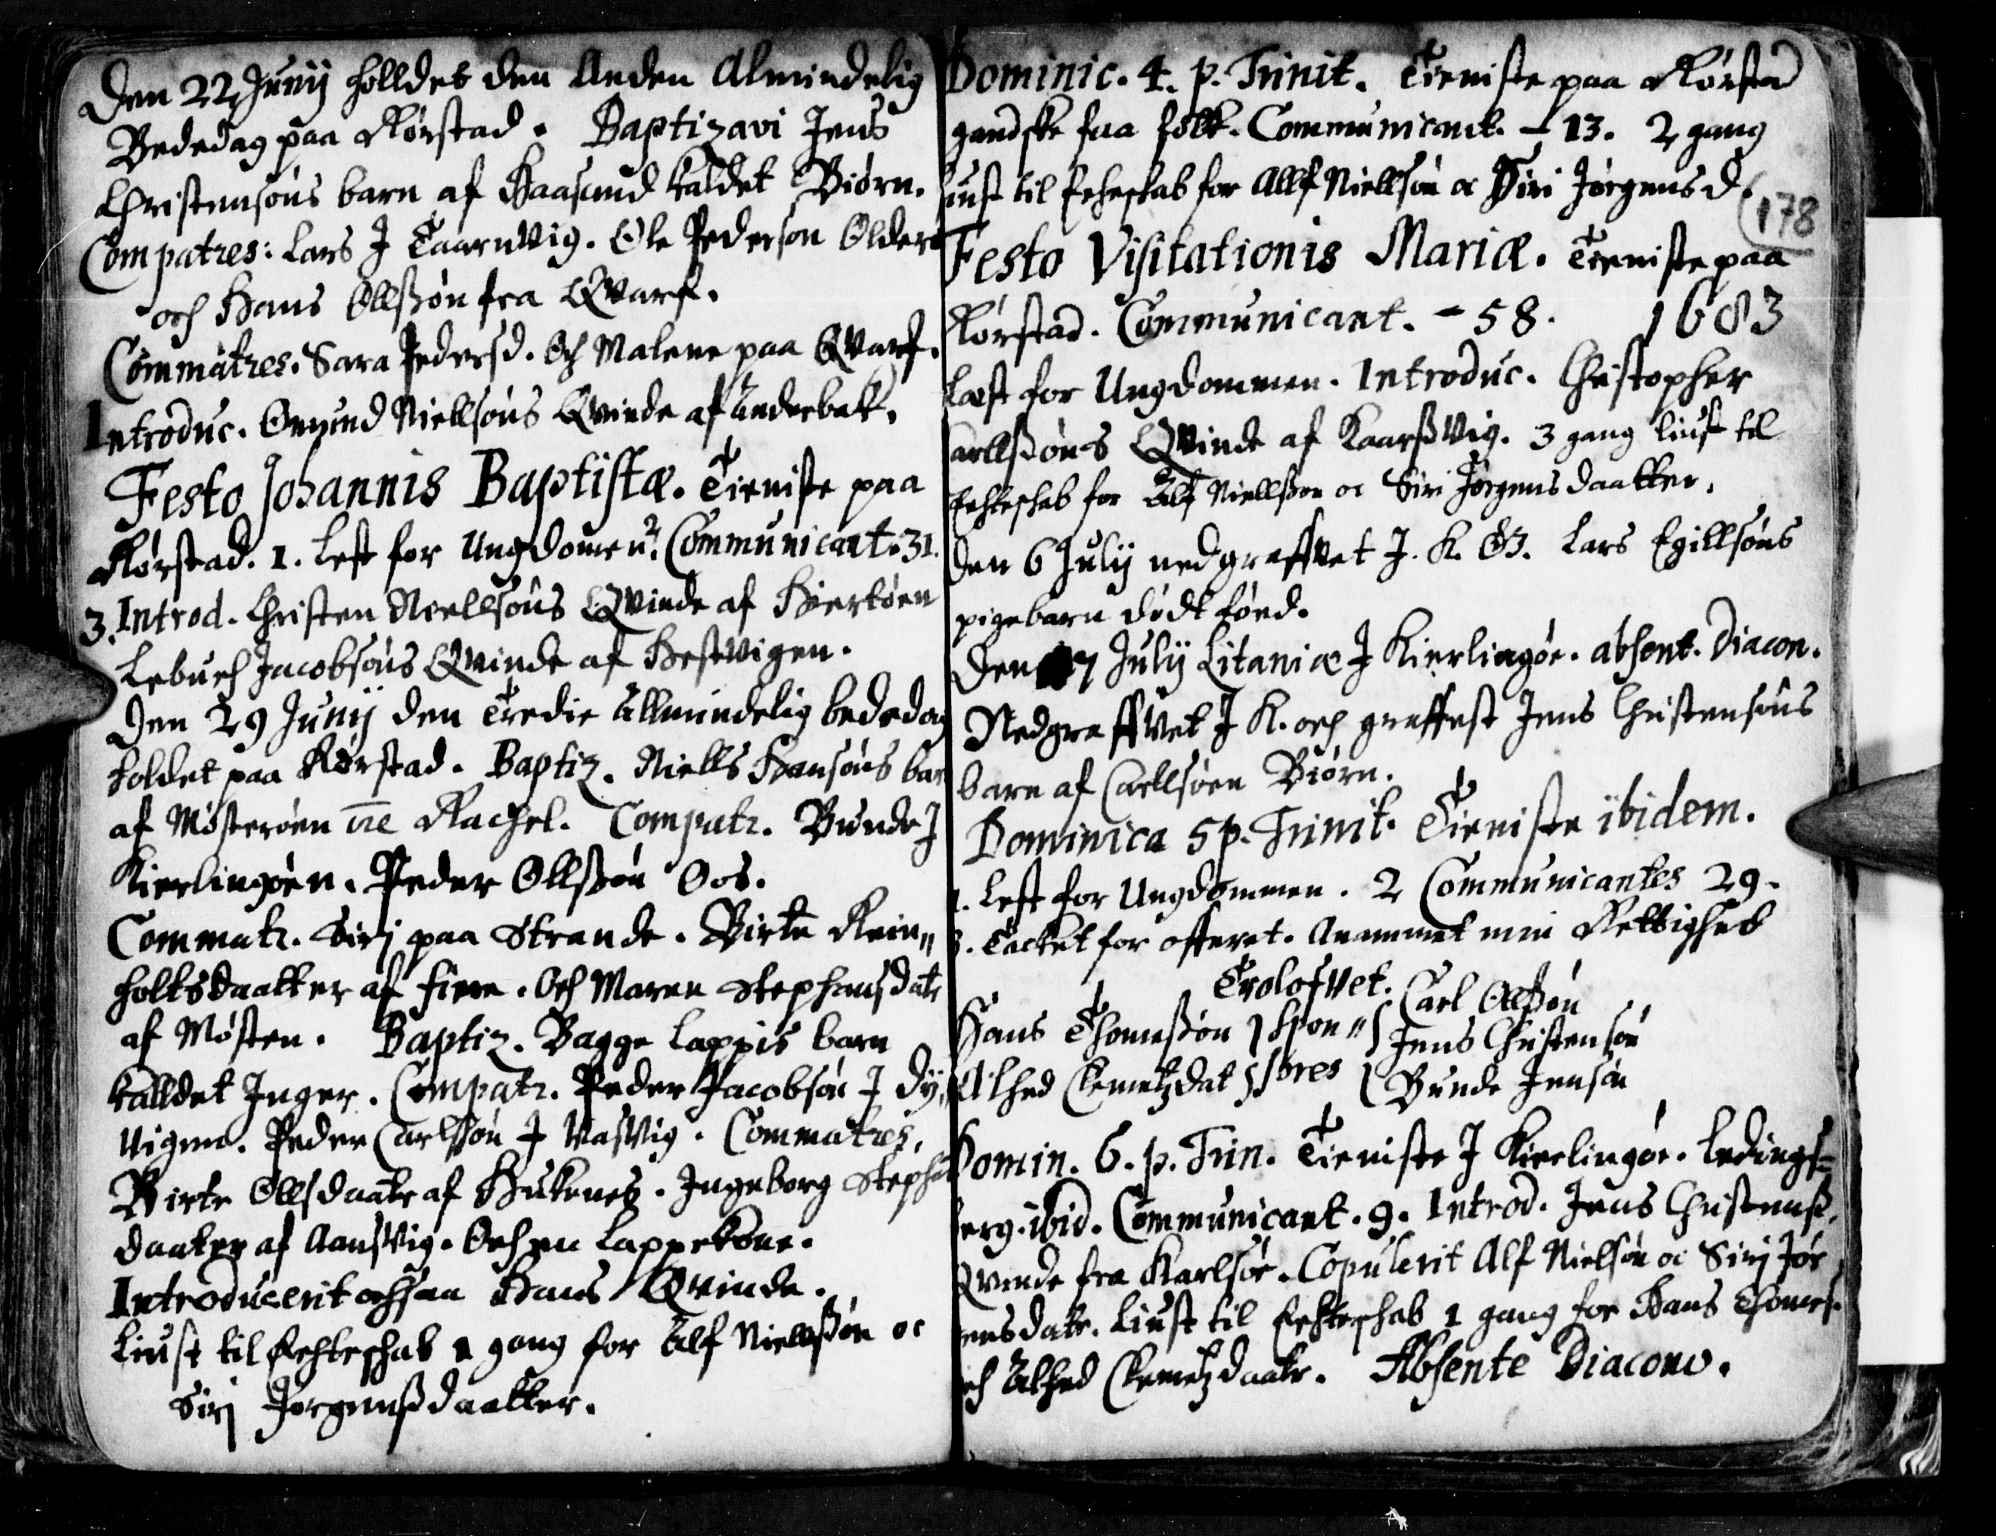 Den 22 Junij holldes den Anden Almindelig
Bededag paa Rørstad. Baptizavi Jens
Christensøns barn af Haasund kaldet Biørn.
Compatres: Lars J Taarnvig. Ole Pederson Older
och Hans Ollssøn fra Qvarf.
Commatres. Sara Pedersd. Och Malene paa Qvarf.
Introduc. Nielssøns Qvinde af Anderbak.
Festo Johannis Baptistæ. Tieniste paa
Rørstad. 1. Lest for Ungdomen 2. Communicant. 31.
3. Introd. Christen Niellsøns Qvinde af Hiertøen
Jacobsøns Qvinde af Hestvigen.
Den 29 Junij den Tredie Allmindelig bededag
holdet paa Kørstad. Baptiz. Niells Hansøns bar
af Møsterøen Rachel. Compatr. Bunde J
Kierlingøen. Peder Ollssøn Oos.
Commatr. Siri paa Strande. Birte Rein„
holtsdaatter af Fiere. Och Maren Stephansdatr
af Møsten. Baptiz. Bagge Lappis barn
kalldet Inger. Compatr. Peder Jacobsøn J Dy„
vigen. Peder Carlssøn J Vasvig. Commatres.
Birte Ollsdaatr af Hukenes. Ingeborg Stepha
daatter af Aansvig. Och en Lappekone.
Introducerit ochsaa Hans Qvinde.
Liust til Echteschab 1 gang for Alf Niellssøn oc
Siri Jorgenssdaatter.
Dominic. 4. p. Trinit. Tieniste paa Rørstad
gandske faa folk. Communicant. - 13. 2 gang
liust til Echeschab for Allf Niellsøn oc Siri Jørgensd.
178
Festo Visitationis Mariæ. Tieniste paa
Rørstad. Communicant. - 58. 1683
Læst for Ungdommen. Introduc. Christopher
arllssøns Qvinde af Kaarssvig. 3 gang liust til
Echteschab for Alf Niellsson oc Siri Jørgensdaatter.
Den 6 Julij nedgraffvet J. K. Lars Egillsøns
pigebarn dødt fød.
Den 7 Julij Litaniæ J Kierlingør. absent. Diacon.
Nedgraffvet J K. och graffest Jens Christensøns
barn af Carllsøen Biørn.
Dominica 5 p. Trinit. Tieniste ibidem.
1. Lest for Ungdommen. 2 Communicantes 29.
3. Tacket for offeret. Anammet min Rettighed
Trolofvet.
Hans Thomessøn } Spon„ { Carl Ollssøn
Alhed Clemetzdat } sores { Jens Christensøn
Bunde Jensøn
Domin. 6. p. Trin. Tieniste J Kierlingør. Ledings-
berg. ibid. Communicant. 9. Introd. Jens Christenss.
Qvinde fra Karlsør. Copulerit Alf Nielsøn oc Siri Jør
ensdatr. Liust til Echteschab 1 gang for Hans Thomes.
och Alhed Clemetzdaatr. Absente Diacono.